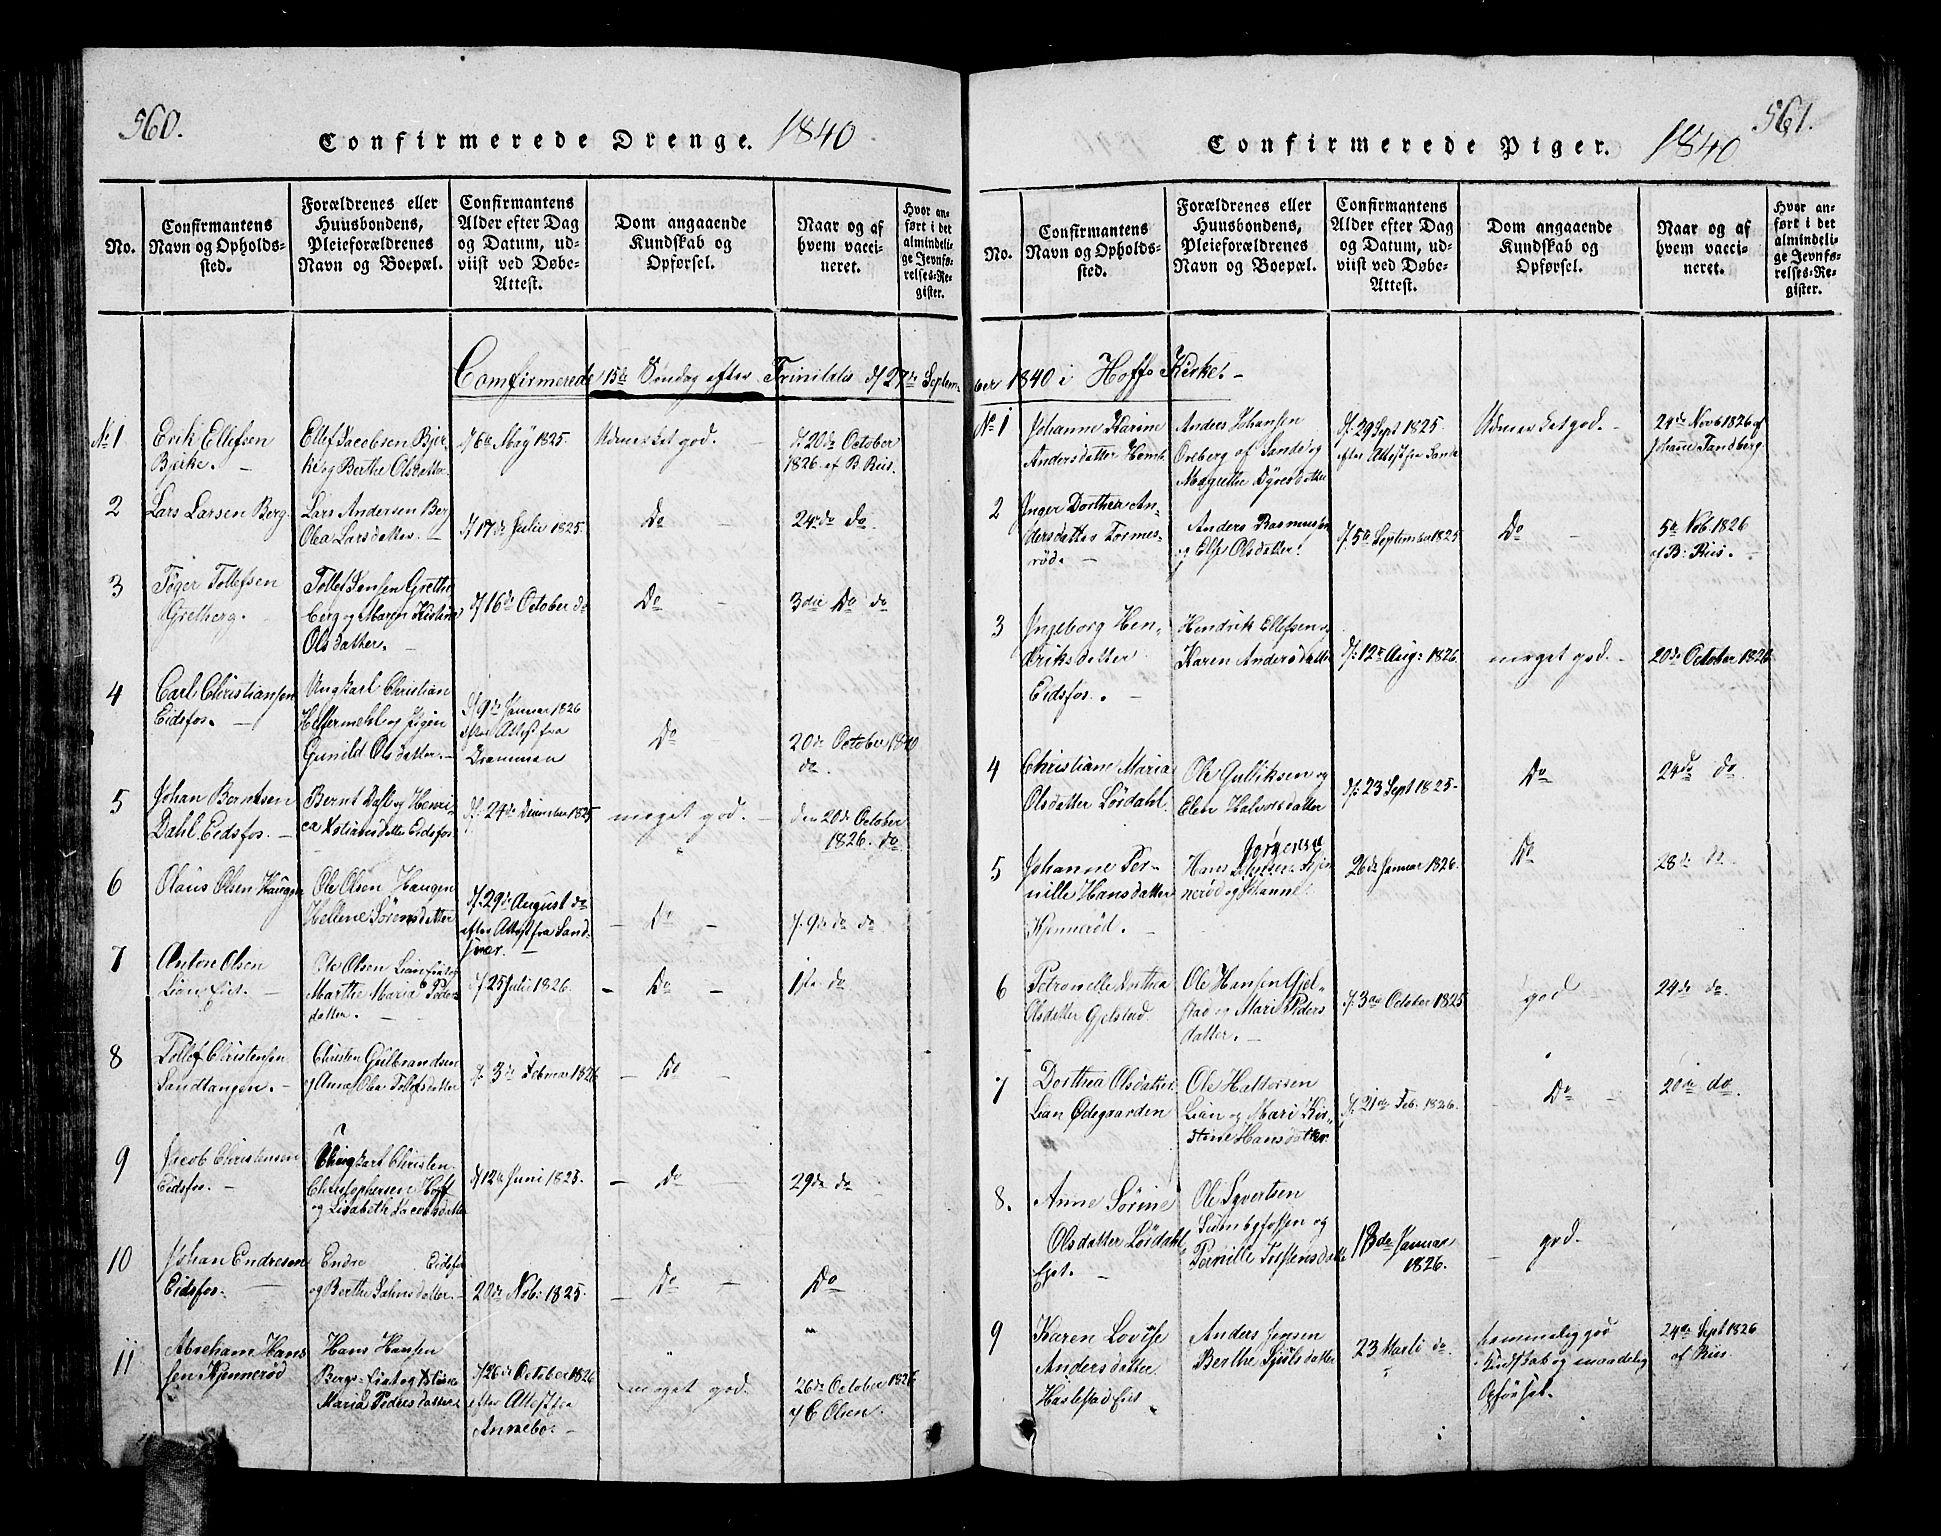 560.
Confirmerede Drenge. 1840
No.
Confirmantens
Navn og Opholds-
sted.
Forældrenes eller
Huusbondens,
Pleieforældrenes
Navn og Boepæl.
Confirmantens
Alder efter Dag
og Datum, ud-
viist ved Døbe-
Attest.
Dom angaaende
Kundskab og
Opførsel.
Naar og af
hvem vacci-
neret.
Hvor an-
ført i det
almindeli-
ge Jevnfø-
relses-Re-
gister.
Comfirmerede 15de Søndag efter Trinitatis d/ 27de Septem-
No 1
Erik Ellefsen
Bjerke.
Ellef Jacobsen Bjer-
ke og Berthe Olsdatter
d/ 6te May 1825.
Udmerket god.
d/ 20de October
1826 af B Riis.
2
Lars Larsen Berg.
Lars Andersen Berg
Olea Larsdatter.
d/ 17de Julii 1825.
Do
24de do.
3
Tøger Tollefsen
Gretberg.
Tollef Jensen Grethe-
berg og Maren Kistine
Olsdatter.
d/ 16de October do
Do
3die Do do
4
Carl Christiansen
Eidsfos.
Ungkarl Christian
Helfermehl og Pigen
Gunild Olsdatter.
d/ 9de Januar 1826
efter Attest fra
Drammen
Do
20de October 1840
do.
5
Johan Berntsen
Dahl Eidsfos.
Bernt Dahl og Henri-
ca Xstiansdatter Eidsfos
d/: 24de December 1825
meget god.
den 20de October
1826. do
6
Olaus Olsen Haugen
Ole Olsen Haugen
Hellene Sørensdatter
d/. 29de August do
efter Attest fra Sand-
svær.
Do
d/. 9de do do
7
Anton Olsen
Lian Eiet.
Ole Olsen Lian Eiet og
Marthe Maria Peders-
datter.
d/ 25 Julii 1826.
Do
1ste do
8
Tollef Christensen
Sandtangen.
Christen Gulbrandsen
og Anne Olea Tollefsdatter
d/. 3de Februar 1826
Do
9
Jacob Christensen
Eidsfos.
Ungkarl Christen
Christophersen Hoff
og Lisabeth Jacobsdatter
d/ 12te Juni 1825.
Do
29de do
10
Johan Endresen
Eidsfos.
Endre Eidsfos
og Berthe Johnsdatter.
20de Nob: 1825.
Do
Do
11
Abraham Han-
sen Kjennerød
Hans Hansen
Bergs-Eiet og Xstine
Maria Pedersdatter
d/26de October 1826
efter Attest fra
Annebo.
meget god.
26de October 1826
af C Olsen.
561.
Confirmerede Piger. 1840
No.
Confirmantens
Navn og Opholds-
sted.
Forældrenes eller
Huusbondens,
Pleieforældrenes
Navn og Boepæl.
Confirmantens
Alder efter Dag
og Datum, ud-
viist ved Døbe-
Attest.
Dom angaaende
Kundskab og
Opførsel.
Naar og af
hvem vacci-
neret.
Hvor an-
ført i det
almindeli-
ge Jevnfø-
relses-Re-
gister.
ber 1840 i Hoffs Kirke.
No 1
Johanne Karine
Andersdatter
Anders Johansen
Oreberg af Sande og
Magrethe Dyresdatter
d/: 29 Sept 1825.
efter Attest fra Sande
Udmerket god.
24de Nov 1826 af
Johanne Tandberg.
2
Inger Dorthea An-
dersdatter Formes-
rød.
Anders Rasmussen
og Else Olsdatter.
d/. 5te September 1825
Do
5te Nob. 1826
af B: Riis.
3
Ingeborg Hen-
driksdatter
Eidsfos.
Hendrik Ellefsen og
Karen Andersdatter
d/: 12te Aug: 1826
meget god.
20de October 1826
4
Christiane Maria
Olsdatter Lørdahl.
Ole Gulliksen og
Elen Halvorsdatter
d/: 23 Sept 1825
Do
24de do.
5
Johanne Per-
nille Hansdatter
Kjennerød.
Jørgensen
Hans Kjen-
nerød og Johanne
26de Januar 1826.
Do
28de do.
6
Petronelle Anthea
Olsdatter Gjelstad.
Ole Hansen Gjel-
stad og Mari Peders-
datter.
d/. 3die October 1825
god
24de do.
7
Dorthea Olsdatter
Lian Ødegaarden
Ole Halvorsen
Lian og Mari Kir-
stine Hansdatter
d/. 21de Feb. 1826.
Do
20de do.
8.
Anne Sørine
Olsdatter Lørdahl
Eiet.
Ole Syvertsen
og
Pernille Torstensdatter
18de Januar
1826.
god.
9
Karen Lovise
Andersdatter
Haslestad Eiet.
Anders Jensen
Berthe Sjulsdatter
23 Marti do
temmelig god
Kundskab og maadelig
Opførsel.
24de Sept 1826
af Riis.